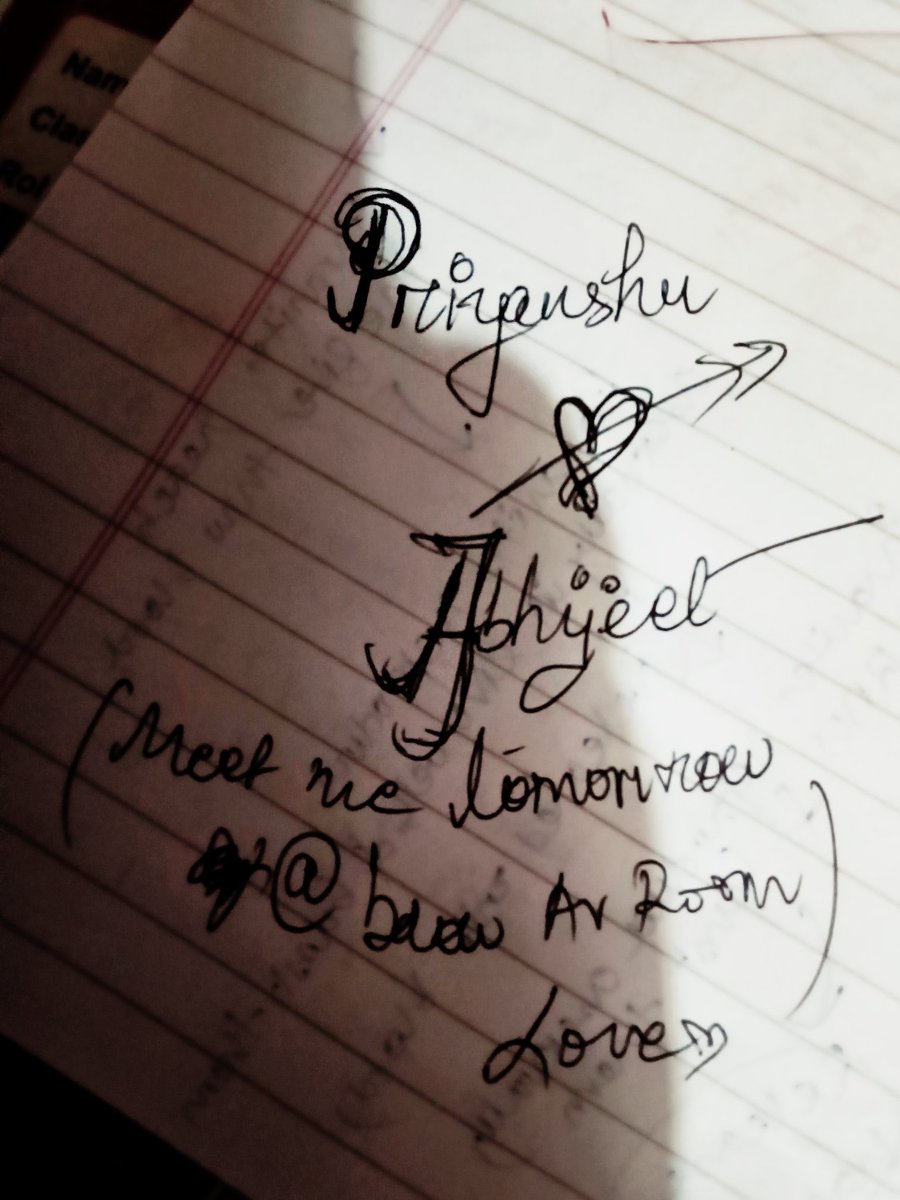 Nam
Clas
Rol
Priyanshu
Abhijeet
(Meet me tomorrow
@ below Av Room)
Love